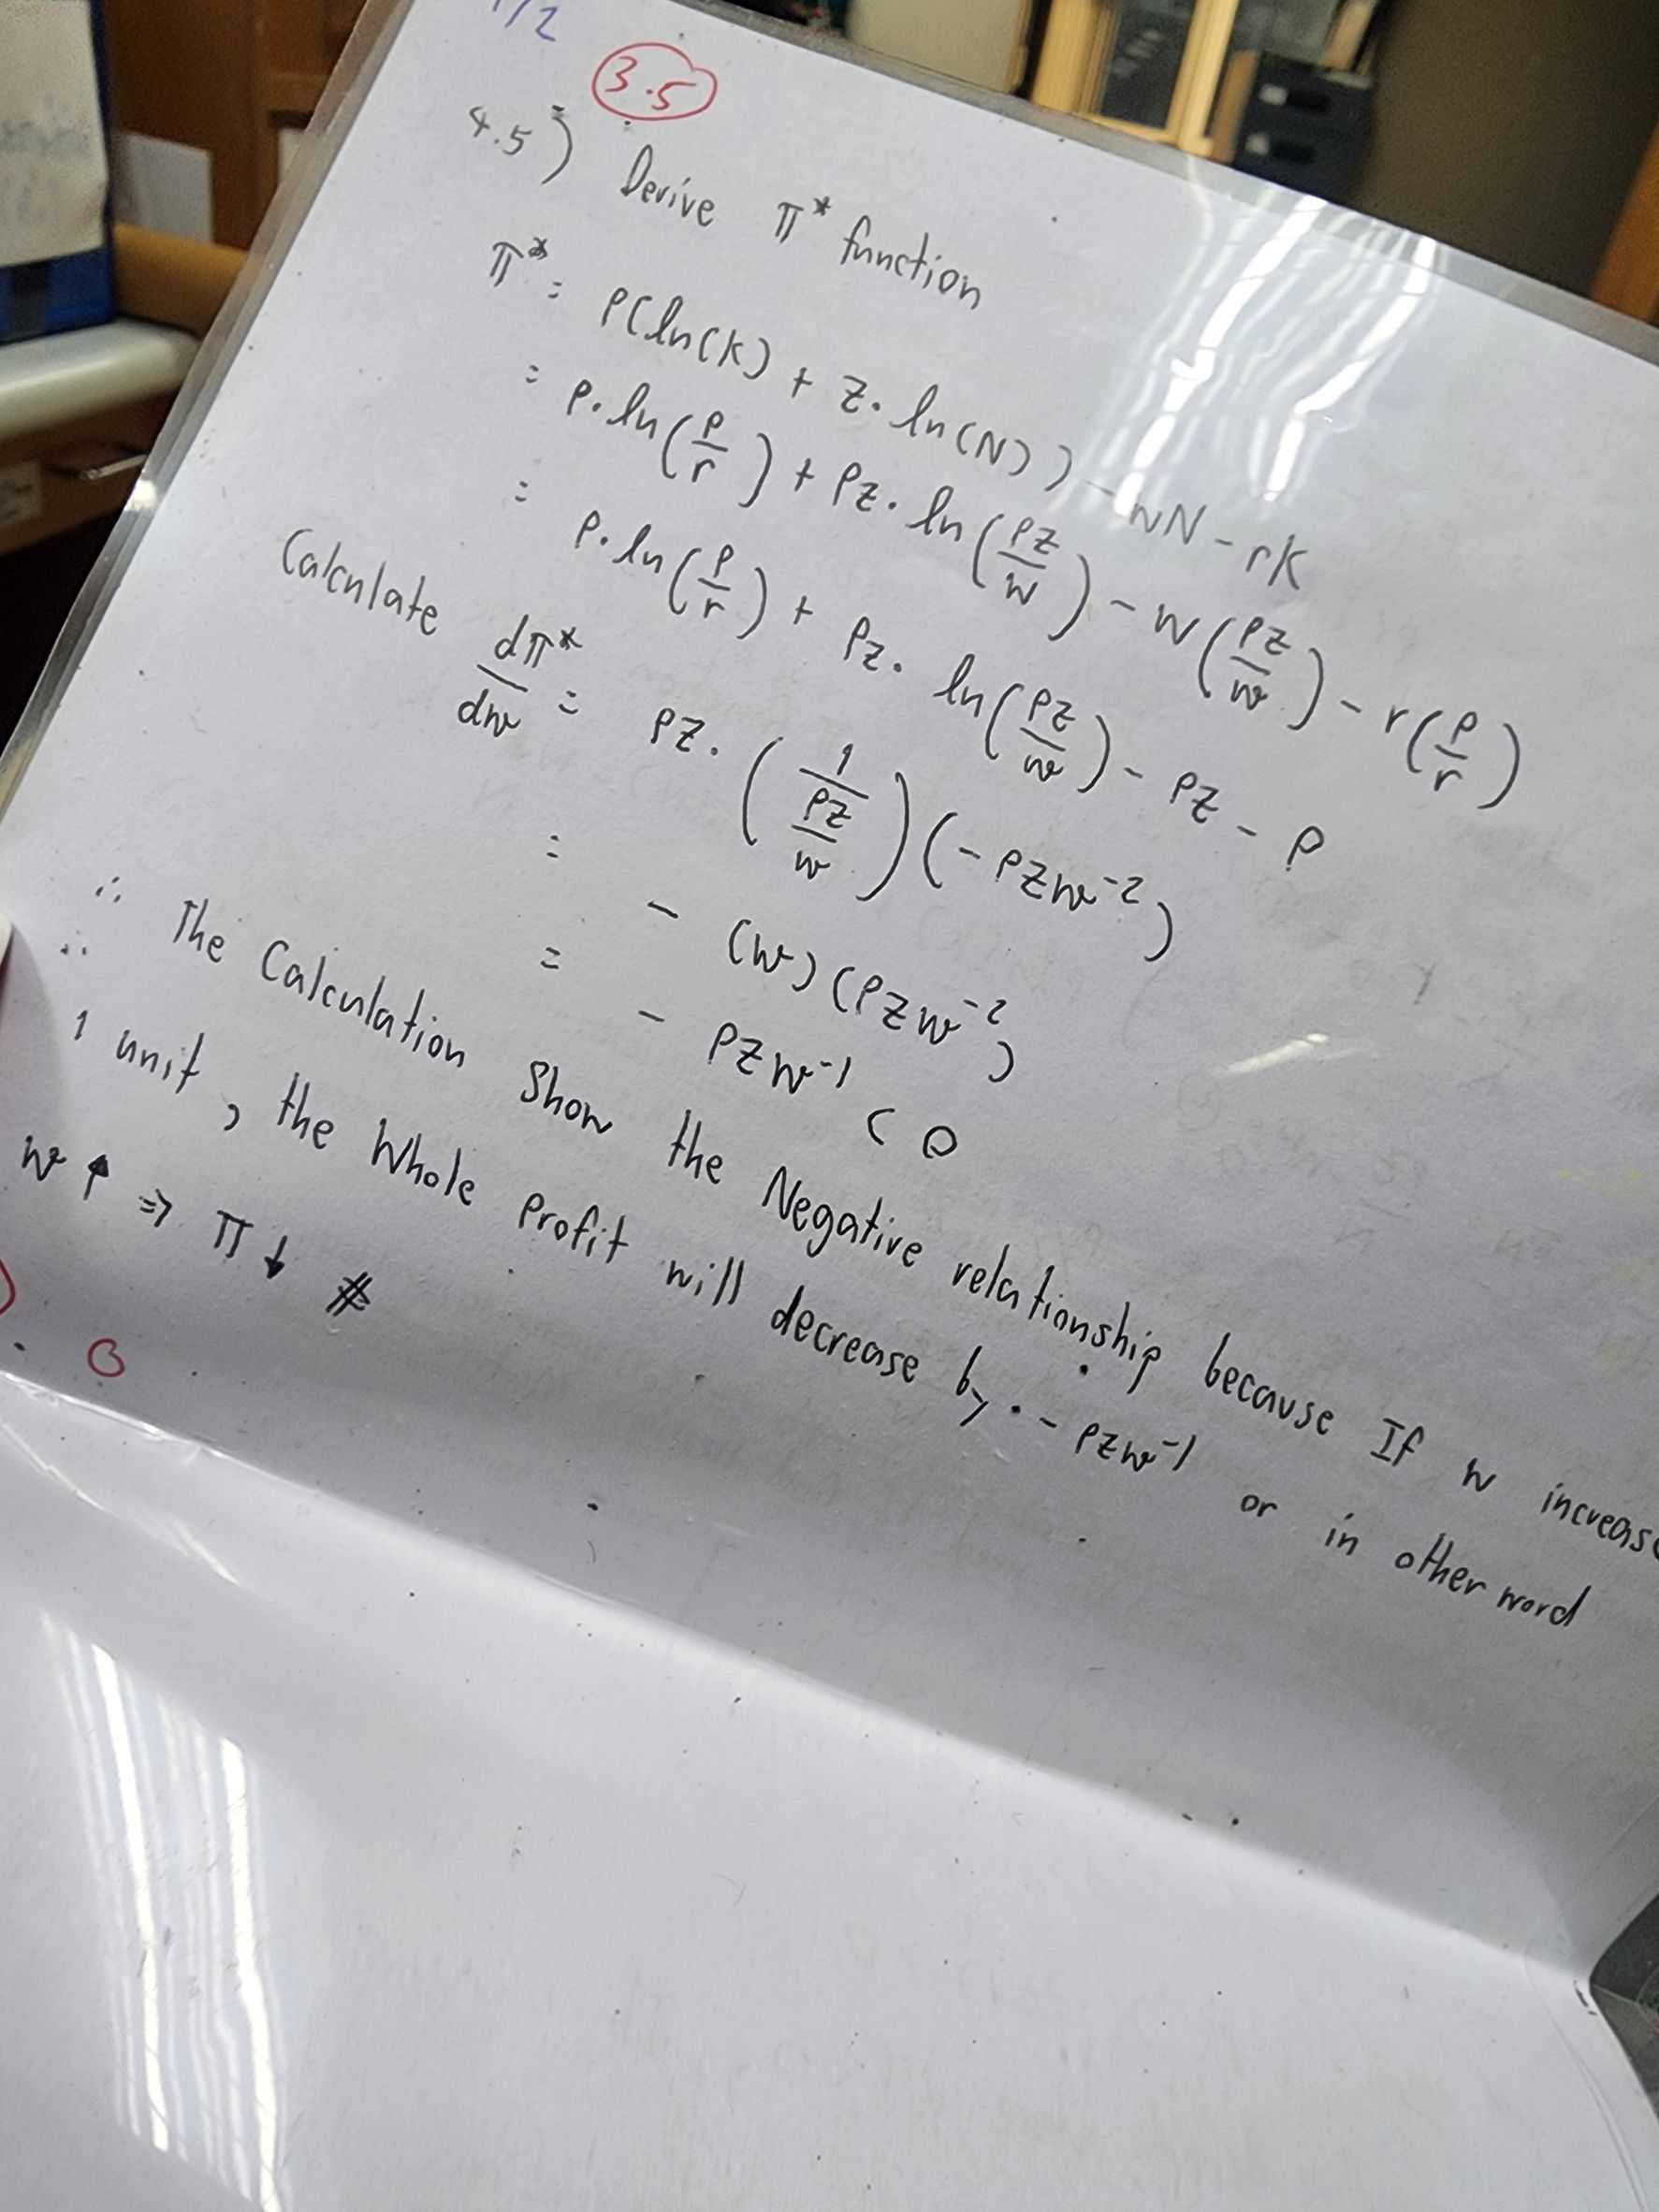 1/2
3.5
4.5) Derive π* function
π* = P(ln(K) + Z. ln(N)) - wN - rK
= P. ln(P/r) + PZ. ln(PZ/w) - w(PZ/w) - r(P/r)
= P. ln(P/r) + PZ. ln(PZ/w) - PZ - P
Calculate dπ*/dw = PZ. (1/(PZ/w)) (-PZw⁻²)
= - (w)(PZw⁻²)
= - PZw⁻¹ < 0
∴ The Calculation Show the Negative relationship because If w increase
1 unit, the Whole Profit will decrease by - PZw⁻¹ or in other word
w↑ ⇒ π↓ #